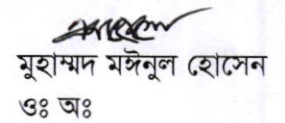 মুহাম্মদ মঈনুল হোসেন
ওঃ অঃ